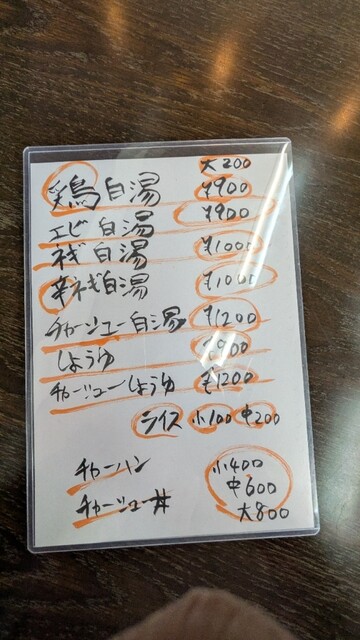 大200
鶏白湯 ¥900
エビ白湯 ¥900
ネギ白湯 ¥1000
辛ネギ白湯 ¥1000
チャーシュー白湯 ¥1200
しょうゆ ¥900
チャーシューしょうゆ ¥1200
ライス 小100 中200
チャーハン 小400
中600
チャーシュー丼 大800